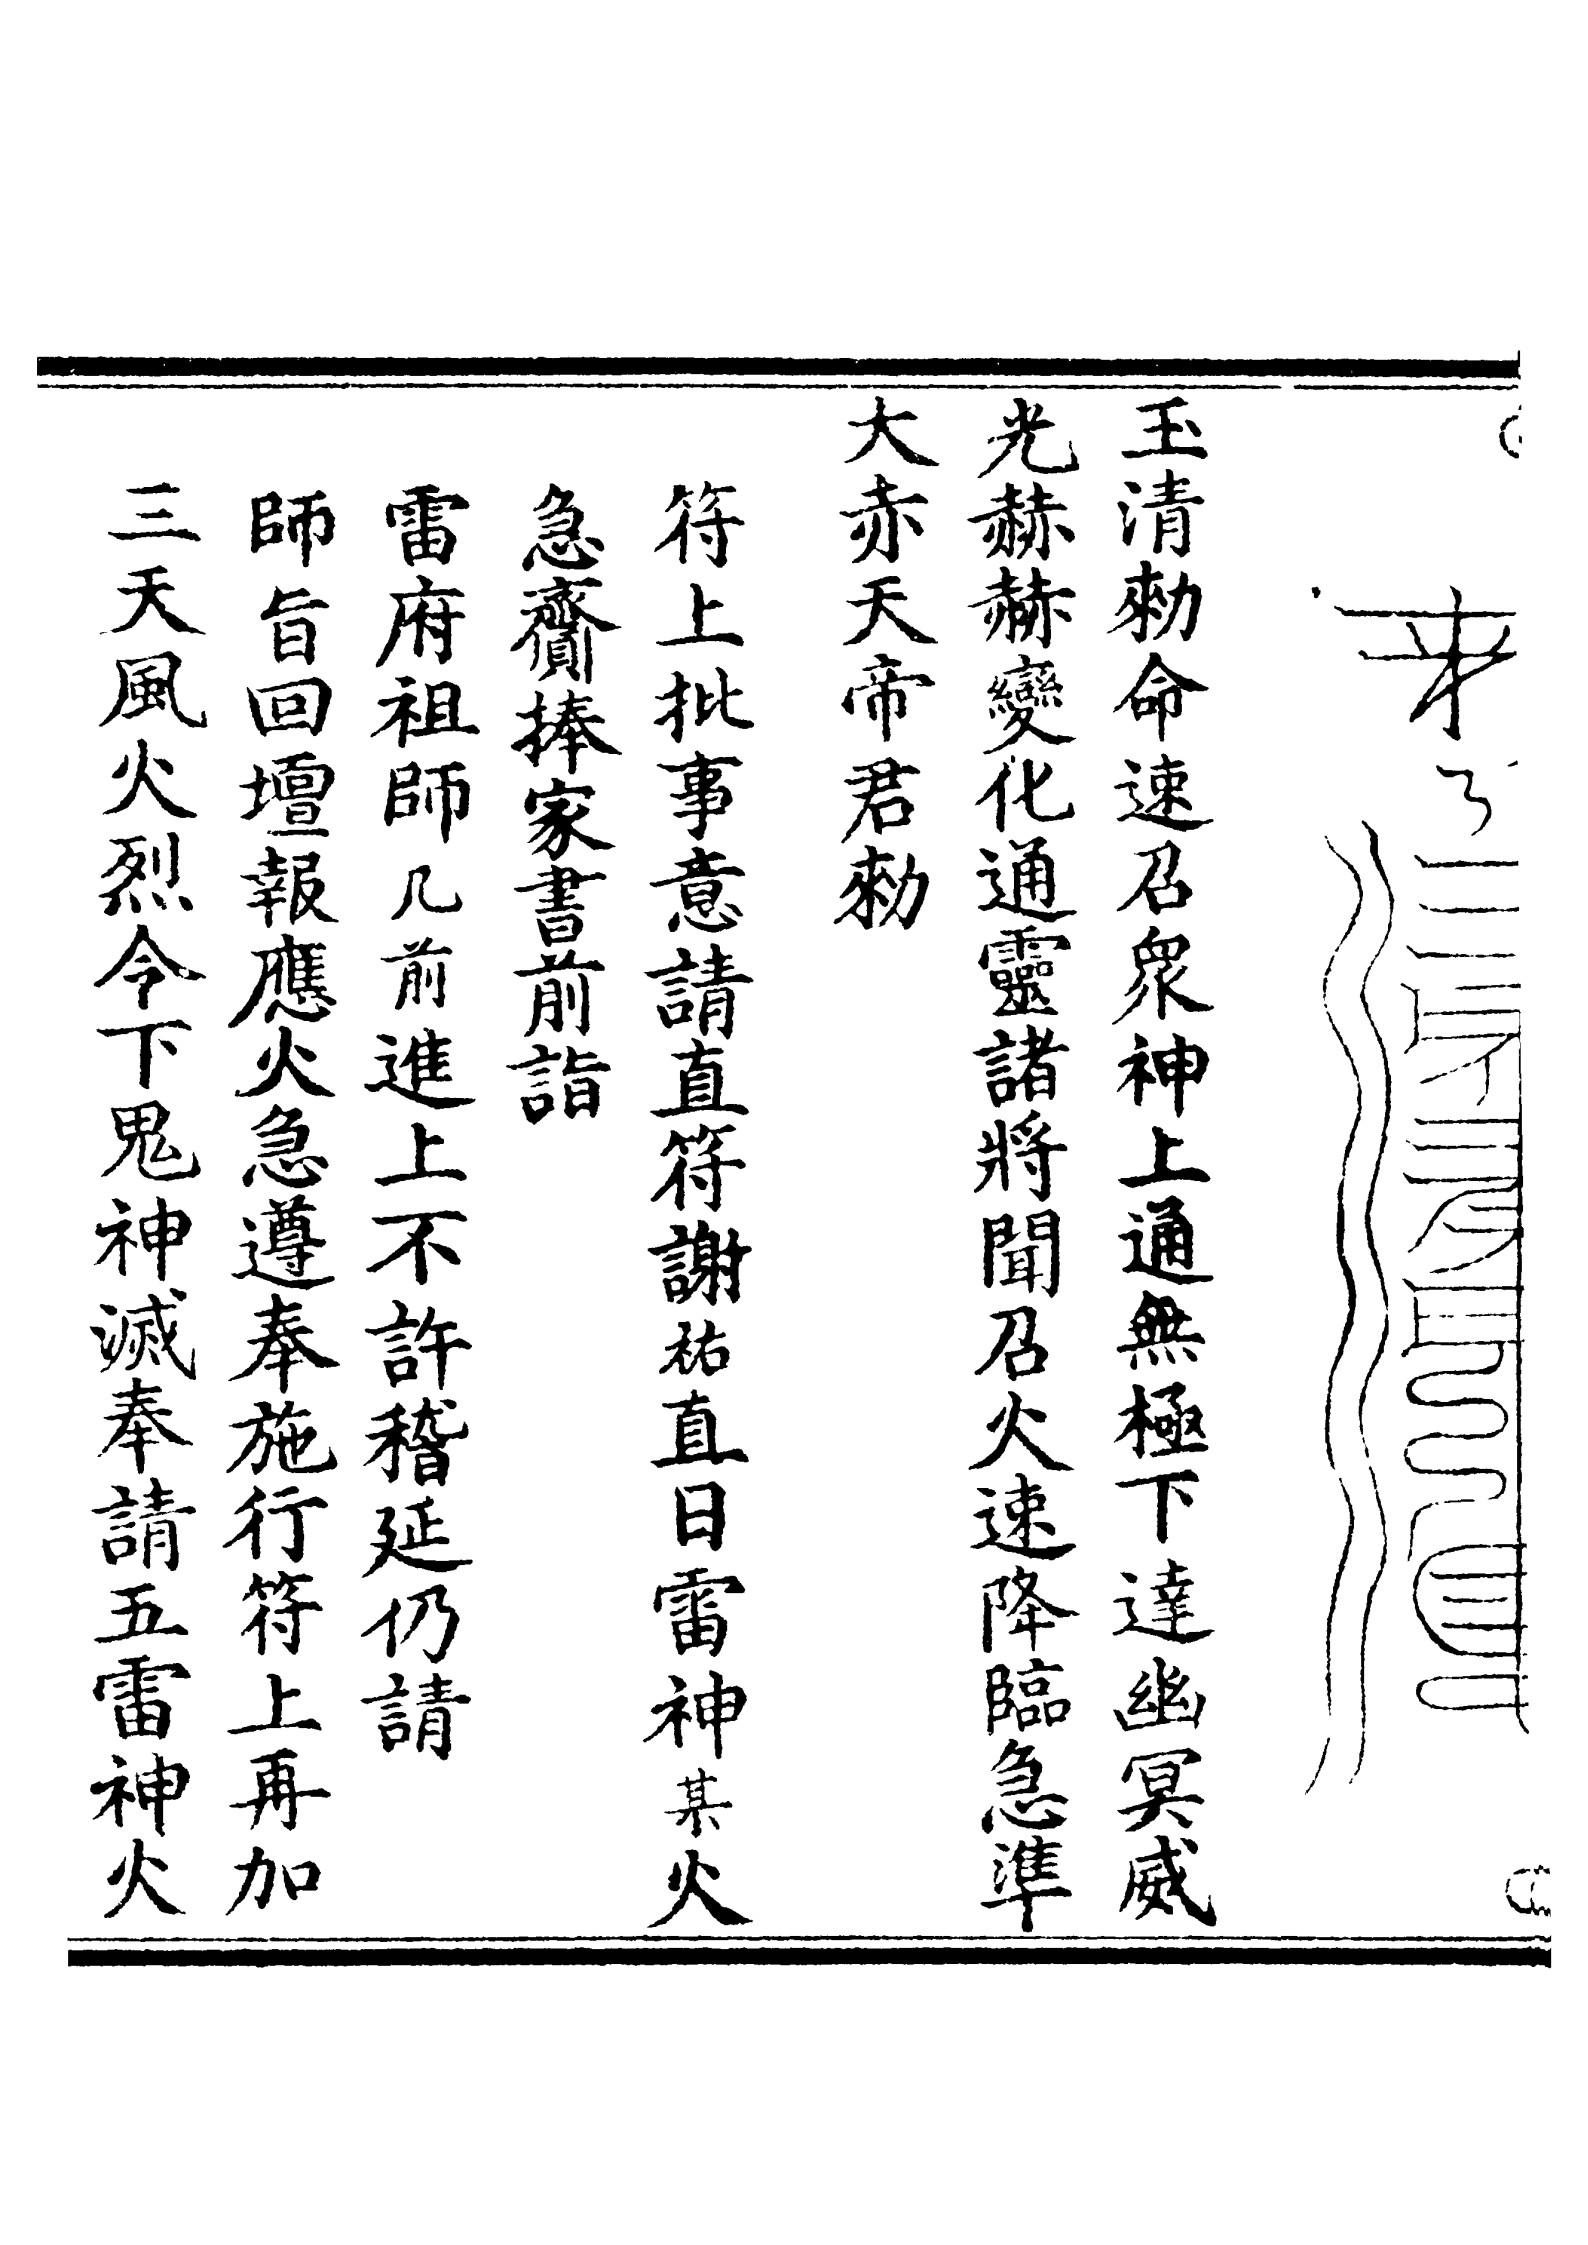 玉清勑命速召眾神上通無極下達幽冥威
光赫赫變化通靈諸將聞召火速降臨急準
大赤天帝君勑
符上批事意請直符謝祐直日雷神某火
急齎捧家書前詣
雷府祖師几前進上不許稽延仍請
師旨回壇報應火急遵奉施行符上再加
三天風火烈令下鬼神滅奉請五雷神火